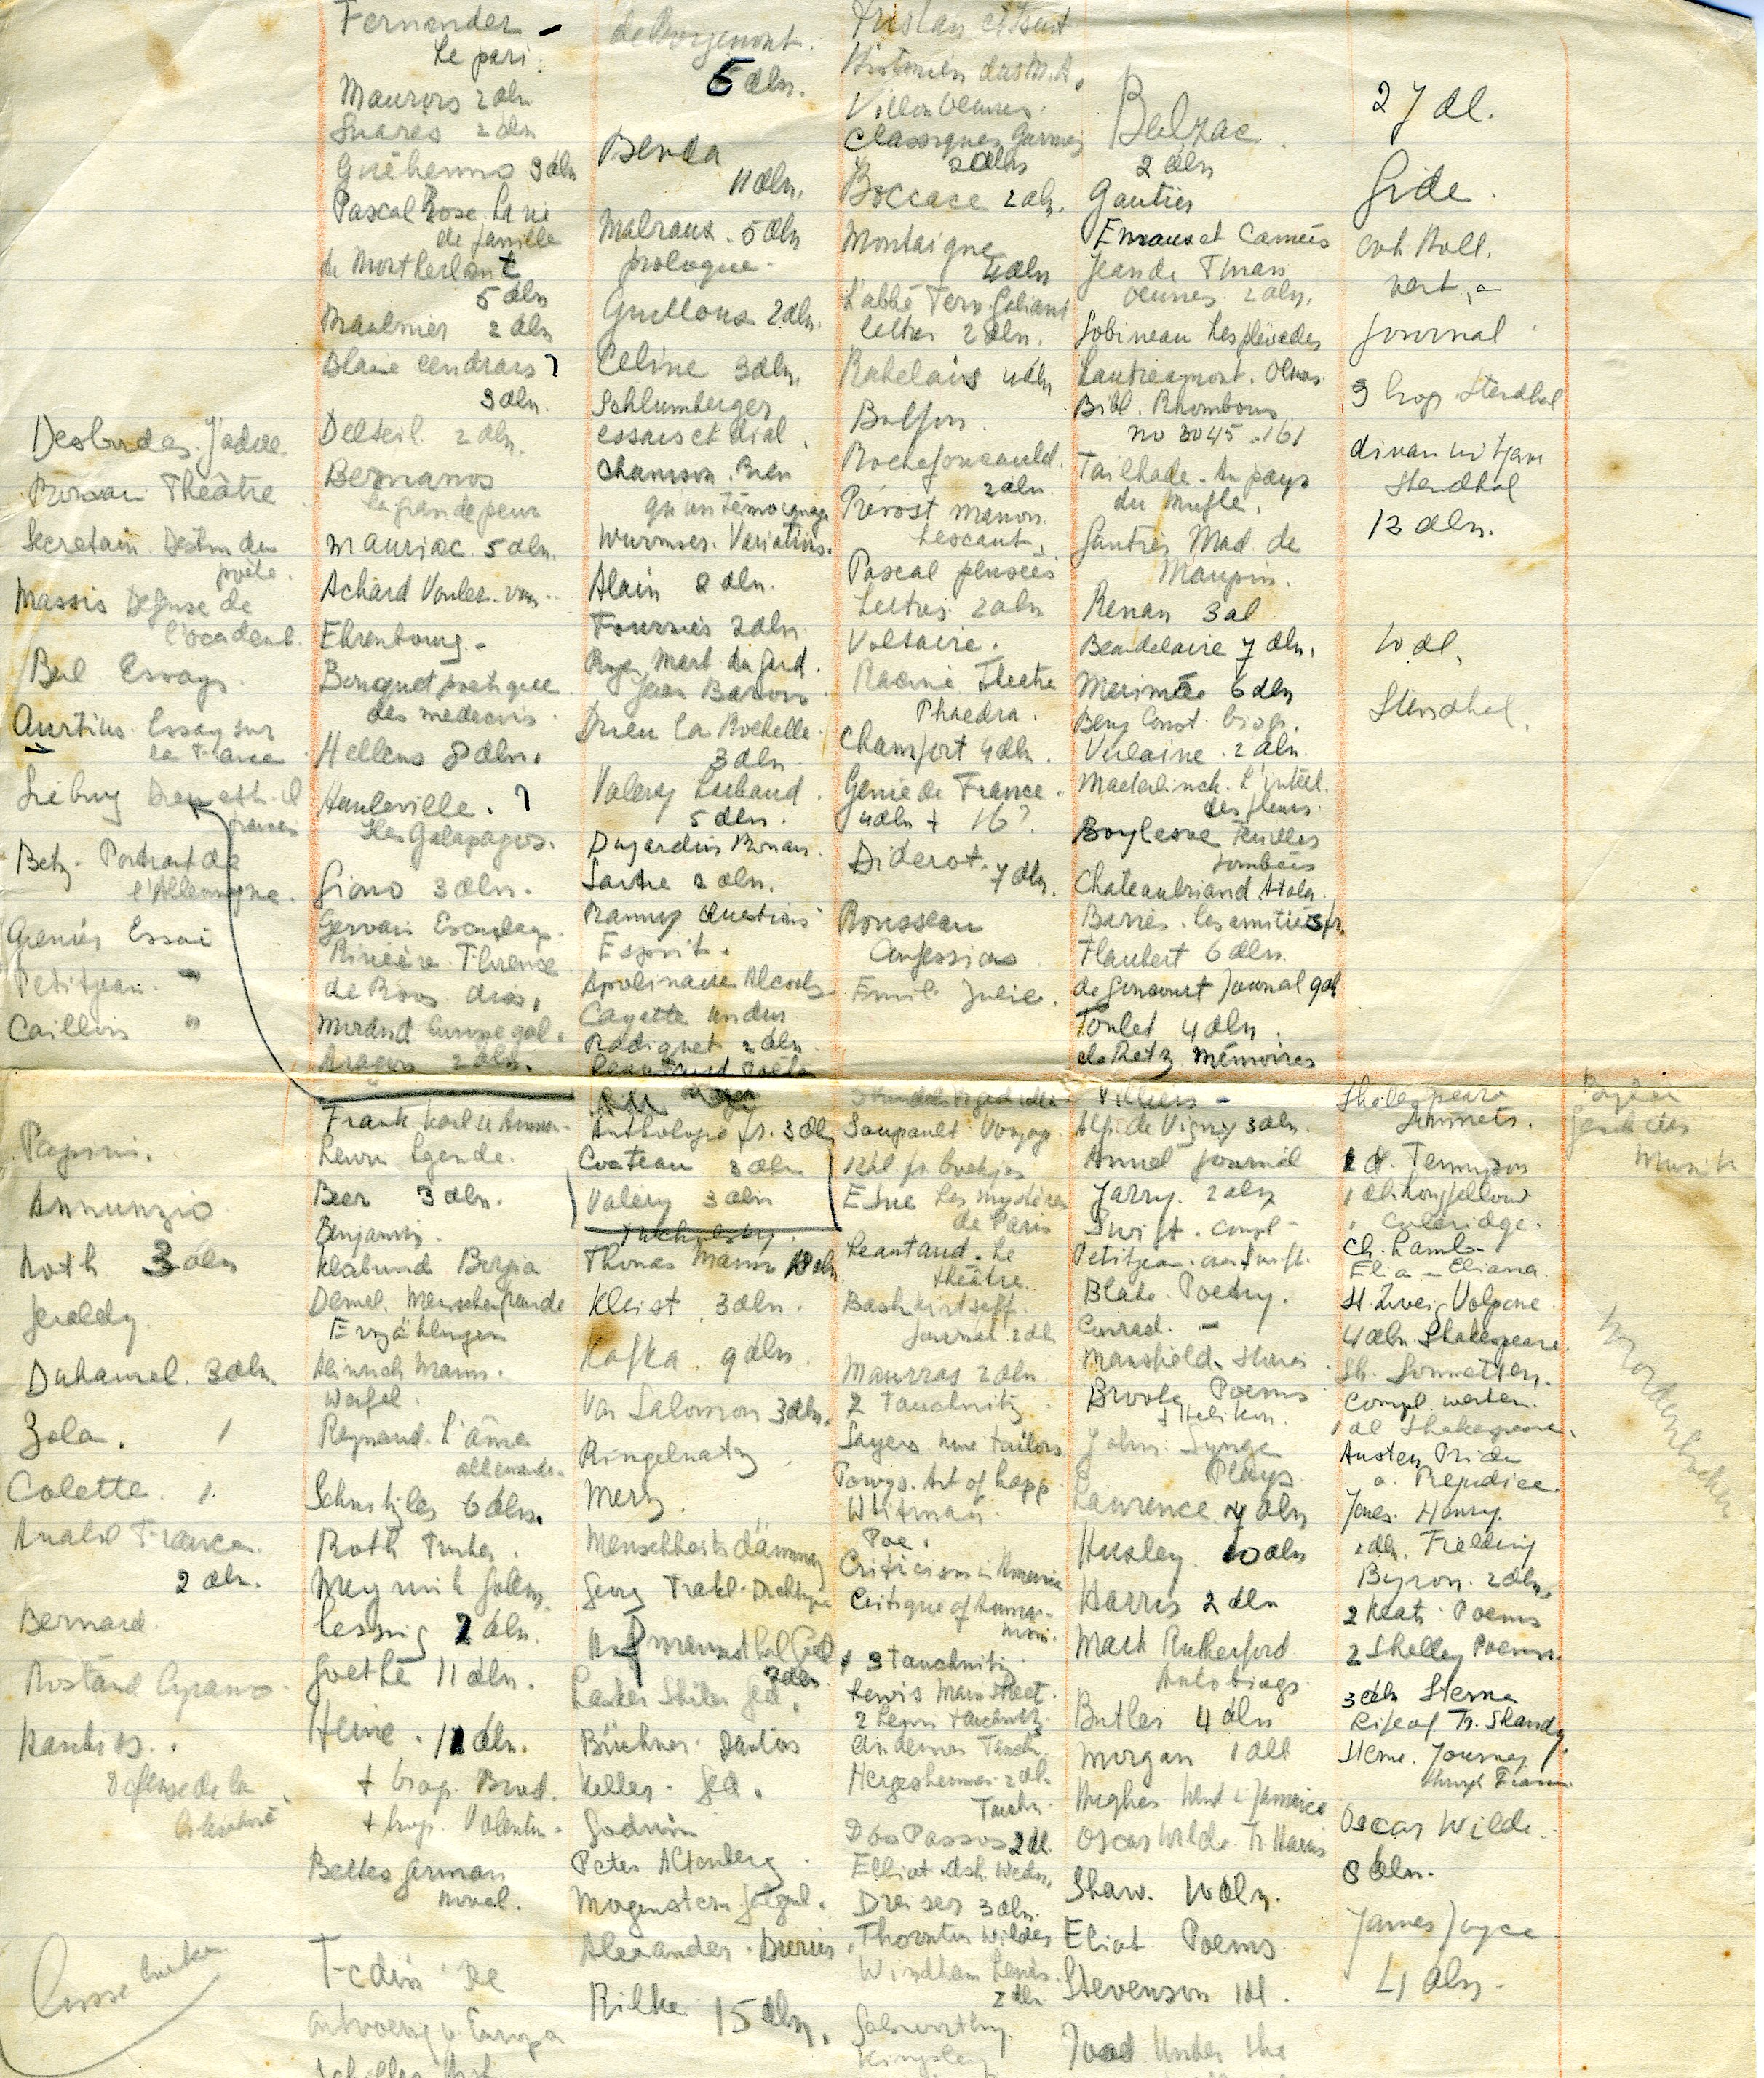 Fernandez -
Le pari.
Maurois 2 dln
Suares 2 dln
Guéhenno 3 dln
Pascal
de famille
de Montherlant
5 dln
Maulnier 2 dln
Blaise Cendrars ?
3 dln.
Delteil 2 dln.
Bernanos
la grande peur
Mauriac. 5 dln.
Achard
Ehrenbourg. -
Bouquet poetique
des medecins.
Hellens 8 dln.
Hauleville. ?
Iles Galapagos.
Giono 3 dln.
Gervais
Rivière. Florence
de Roos
Morand Europe gal.
Aragon 2 dln.
6 dln.
Benda
11 dln.
Malraux. 5 dln
prologue.
Guilloux 2 dln.
Celine 3 dln.
Schlumberger
essais et dial.
Chamson. Rien
qu'un témoignage
Wurmser. Variations.
Alain 2 dln.
Fournier 2 dln
Rog. Mart. du Gard.
Jean Barois
Drieu la Rochelle.
3 dln.
Valery Larbaud.
5 dln.
Dujardin Roman.
Sartre 2 dln.
Ramuz Questions
Esprit.
Apolinaire Alcools
Cayette
Radiguet 2 dln.
Tristan et Iseut
Historiens du M.A.
Villon Oeuvres.
Classiques Garnier
2 dln
Boccace 2 dln.
Montaigne
4 dln
L'abbé Fern. Galiani
lettres 2 dln.
Rabelais 4 dln
Buffon.
Rochefoucauld.
2 dln.
Prévost Manon.
Lescaut.
Pascal pensées
Lettres 2 dln
Voltaire.
Racine Theatre
Phaedra.
Chamfort 4 dln.
Genie de France.
4 dln + 16?
Diderot.
7 dln.
Rousseau
Confessions
Emile Julie.
Balzac.
2 dln
Gautier
Emaux et Camées
Jean de Tinan
oeuvres 2 dln.
Gobineau Les pléiades
Lautreamont.
Bibl. Rhombus
no 3045.161
Tailhade. Au pays
du Mufle.
Gautier Mad. de
Maupin.
Renan 3 dl
Baudelaire 7 dln.
Merimée 6 dln
Benj. Const. biogr.
Verlaine. 2 dln.
Maeterlinck. L'intell.
des fleurs.
Boylesve Feuilles
tombées
Chateaubriand Atala.
Barrès. les amitiés fr.
Flaubert 6 dln.
de Goncourt Journal 9 dl
Toulet 4 dln.
de Retz Mémoires
27 dl.
Gide.
Journal
3 biogr. Stendhal
divan
Stendhal
13 dln.
10 dl.
Stendhal.
Desbordes. J'adore.
Romain Theâtre
Secretain. Destin du
poète.
Massis Défense de
l'occident.
Bul Essays.
Curtius Essay sur
la France
Sieburg Dieu est-il
francais
Betz. Portrait de
l'Allemagne.
Grenier Essai
Petitjean. "
Caillois "
Papini.
Annunzio.
Roth 3 dln
Geraldy.
Duhamel. 3 dln.
Zola. 1
Colette. 1.
Anatol France.
2 dln.
Bernard.
Rostand Cyrano.
Défense de la
Russe
Frank. Karl u Anna.
Beer 3 dln.
Benjamin.
Klabund Borgia
Demel. Menschenfreunde
Erzählungen
Heinrich Mann.
Werfel.
Reynaud. L'âme
allemande.
Schnitzler 6 dln.
Roth
Meyrink Golem.
Lessing 2 dln.
Goethe 11 dln.
Heine. 11 dln.
+ biogr. Brod.
+ biogr. Valentin.
Belles german
novel.
Fedin De
v. Europa
Anthologie fr. 3 dln
Cocteau 3 dln
Valery 3 dln
Tucholsky.
Thomas Mann 18 dln
Kleist 3 dln.
Kafka. 9 dln.
Von Salomon 3 dln.
Ringelnatz.
Merz.
Menschheitsdämmerung
Georg Trakl. Dichtungen
Hofmannsthal Ged.
2 dln
Lasker Schüler ged.
Büchner. Dantons
Keller. ged.
Godwin
Peter Altenberg.
Morgenstern
Alexander
Rilke 15 dln.
Soupault Voyage.
E Sue Les mystères
de Paris
Leautaud. Le
théâtre.
Bashkirtseff.
Journal 2 dln
Maurras 2 dln.
2 Tauchnitz.
Sayers. Nine tailors
Powys. Art of happ.
Whitman.
Poe.
Criticism in America
Critique of human-
nism.
3 Tauchnitz.
Lewis Main Street.
2 Lewis Tauchnitz.
Anderson Tauchn.
Hergesheimer. 2 dl.
Tauchn.
Dos Passos 2 dl.
Elliot. Ash. Wedn.
Dreiser 3 dln.
Thornton Wilder
Windham Lewis.
2 dln
Galsworthy.
Kingsley
Villiers -
Alfr. de Vigny 3 dln.
Amiel Journal
Jarry. 2 dln
Swift. compl -
Petitjean.
Blake. Poetry.
Conrad. -
Mansfield. stories.
Brooke Poems
+ Helikon.
John Synge
Plays.
Lawrence 4 dln
Huxley. 10 dln
Harris 2 dln
Mark Rutherford
Autobiogr.
Butler 4 dln
Morgan 1 dl
Hughes Wind i Jamaica
Oscar Wilde Fr Harris
Shaw. 10 dln.
Eliot Poems.
Stevenson 1 dl.
Under the
Shakespeare
Sonnets.
1 d. Tennyson
1 dl. Longfellow
1 Coleridge.
Ch. Lamb -
Elia - Eliana.
St. Zweig Volpone.
4 dln. Shakespeare.
Sh. Sonnetten.
Compl. werken.
1 dl Shakespeare.
Austen Pride
a. Prejudice.
James. Henry.
1 dl. Fielding
Byron. 2 dln.
2 Keats Poems
2 Shelley Poems.
3 dln Sterne
Life of Tr. Shandy
Sterne. Journey
through France.
Oscar Wilde.
8 dln.
James Joyce
4 dln.
Woordenboeken